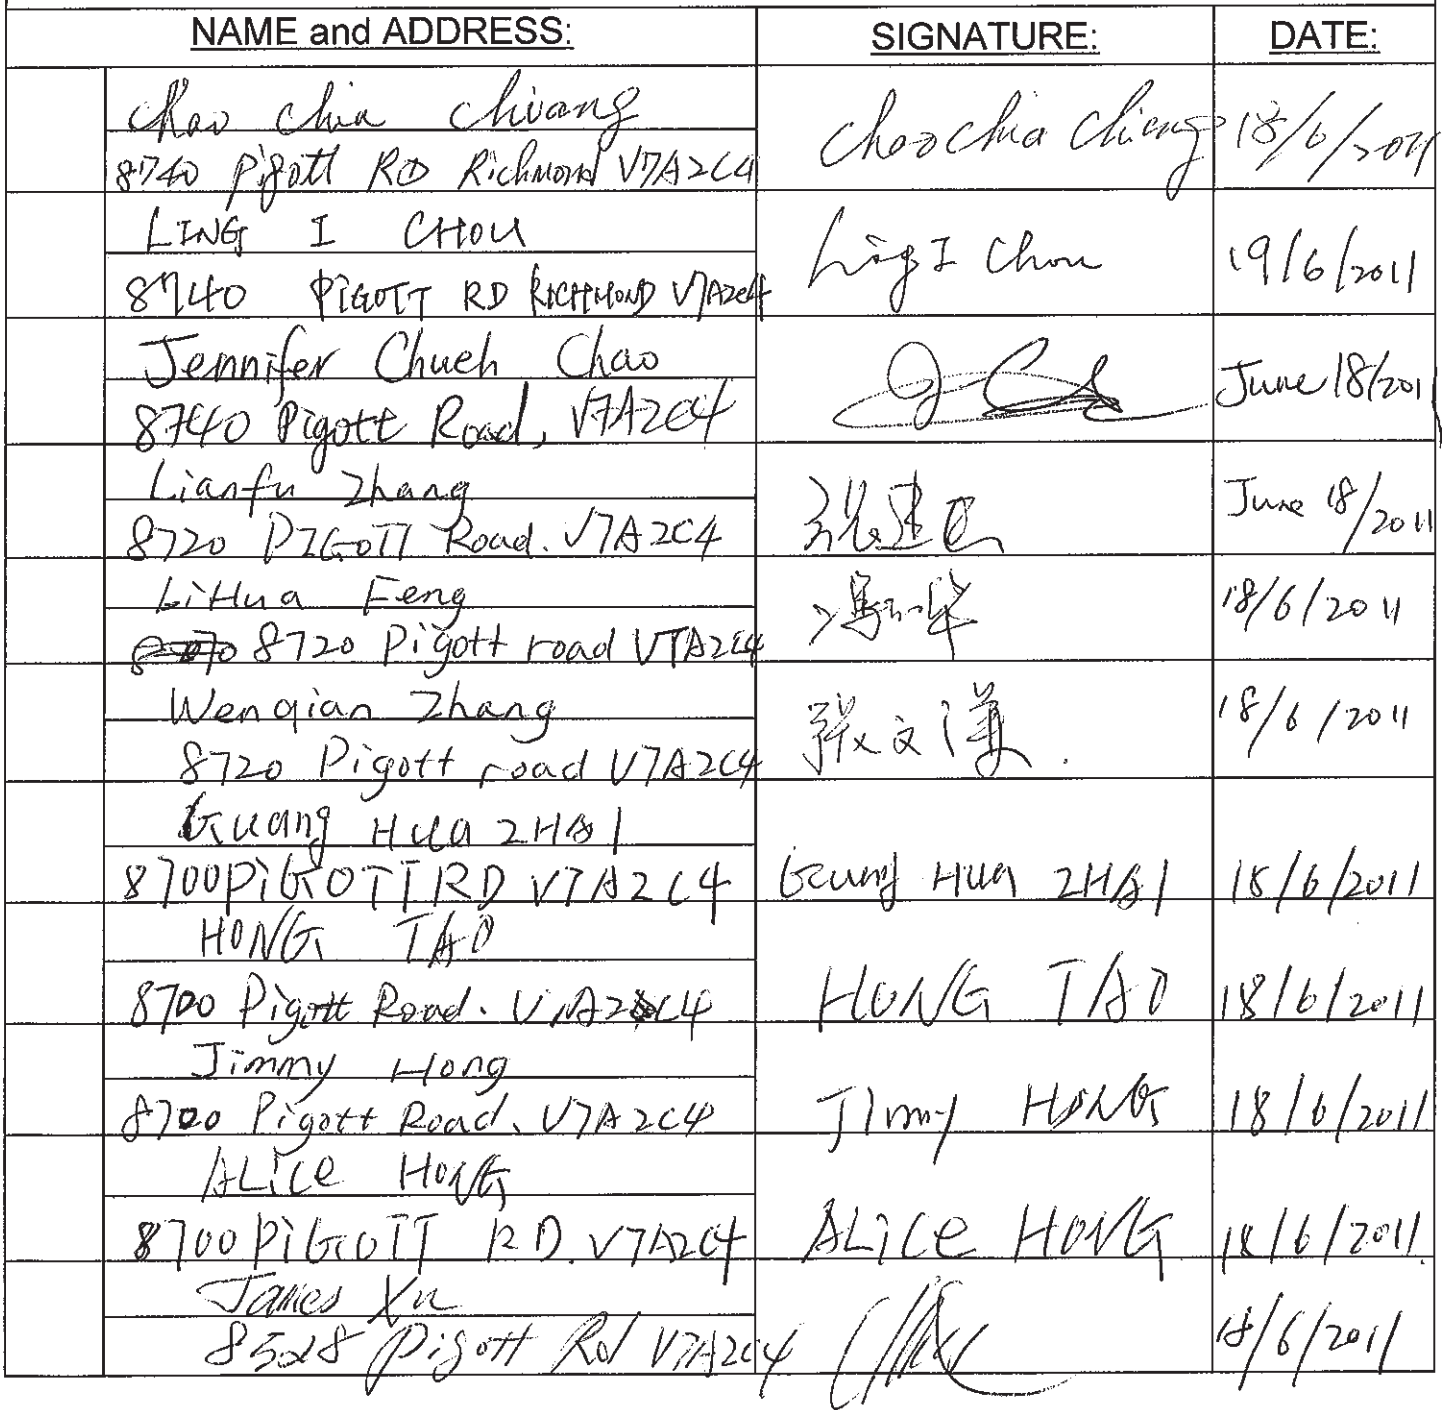 NAME and ADDRESS: SIGNATURE: DATE:
Chao Chia Chiang
8740 Pigott RD Richmond V7A2C4 Chao chia Chiang 18/6/2011
LING I CHOU
8740 PIGOTT RD RICHMOND V7A2C4 Ling I Chou 19/6/2011
Jennifer Chueh Chao
8740 Pigott Road, V7A2C4 June 18/2011
Lianfu Zhang
8720 PIGOTT Road. V7A2C4 June 18/2011
LiHua Feng
8720 Pigott road V7A2C4 18/6/2011
Wenqian Zhang
8720 Pigott road V7A2C4 张文 18/6/2011
Guang Hua ZHAI
8700 PiGOTT RD V7A2C4 Guang Hua ZHAI 18/6/2011
HONG TAO
8700 Pigott Road. V7A2C4 HONG TAO 18/6/2011
Jimmy Hong
8700 Pigott Road. V7A2C4 JImmy HONG 18/6/2011
ALiCe HONG
8700 PiGOTT RD. V7A2C4 ALiCe HONG 18/6/2011.
James Xu
8528 Pigott Rd V7A2C4 18/6/2011